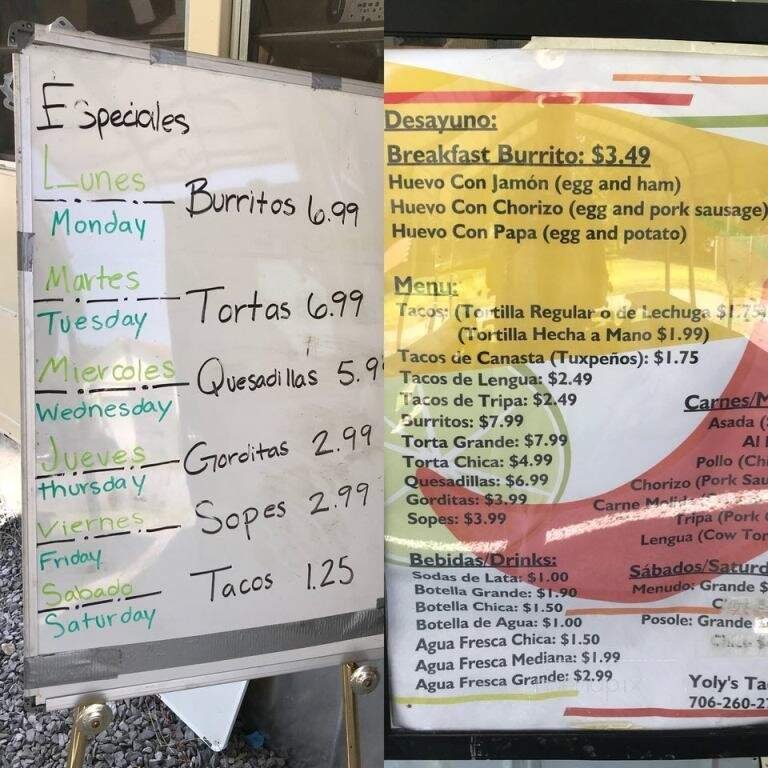 Especiales
Lunes
Monday
Burritos 6.99
Martes
Tuesday
Tortas 6.99
Miercoles
Wednesday
Quesadillas 5.9
Jueves
thursday
Gorditas 2.99
Viernes
Friday
Sopes 2.99
Sabado
Saturday
Tacos 1.25
Desayuno:
Breakfast Burrito: $3.49
Huevo Con Jamón (egg and ham)
Huevo Con Chorizo (egg and pork sausage)
Huevo Con Papa (egg and potato)
Menu:
Tacos: (Tortilla Regular o de Lechuga $1.75)
(Tortilla Hecha a Mano $1.99)
Tacos de Canasta (Tuxpeños): $1.75
Tacos de Lengua: $2.49
Tacos de Tripa: $2.49
Burritos: $7.99
Torta Grande: $7.99
Torta Chica: $4.99
Quesadillas: $6.99
Gorditas: $3.99
Sopes: $3.99
Carnes/M
Asada (
Al
Pollo (Ch
Chorizo (Pork Sau
Carne
Tripa (Pork
Lengua (Cow Ton
Bebidas/Drinks:
Sodas de Lata: $1.00
Botella Grande: $1.90
Botella Chica: $1.50
Botella de Agua: $1.00
Agua Fresca Chica: $1.50
Agua Fresca Mediana: $1.99
Agua Fresca Grande: $2.99
Sábados/Saturd
Menudo: Grande $
Posole: Grande
Yoly's Ta
706-260-2